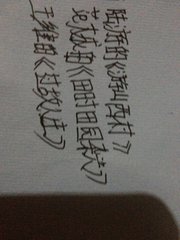 陆游的《游山西村》
范成大的《四时田园杂兴》
王维的《过故人庄》